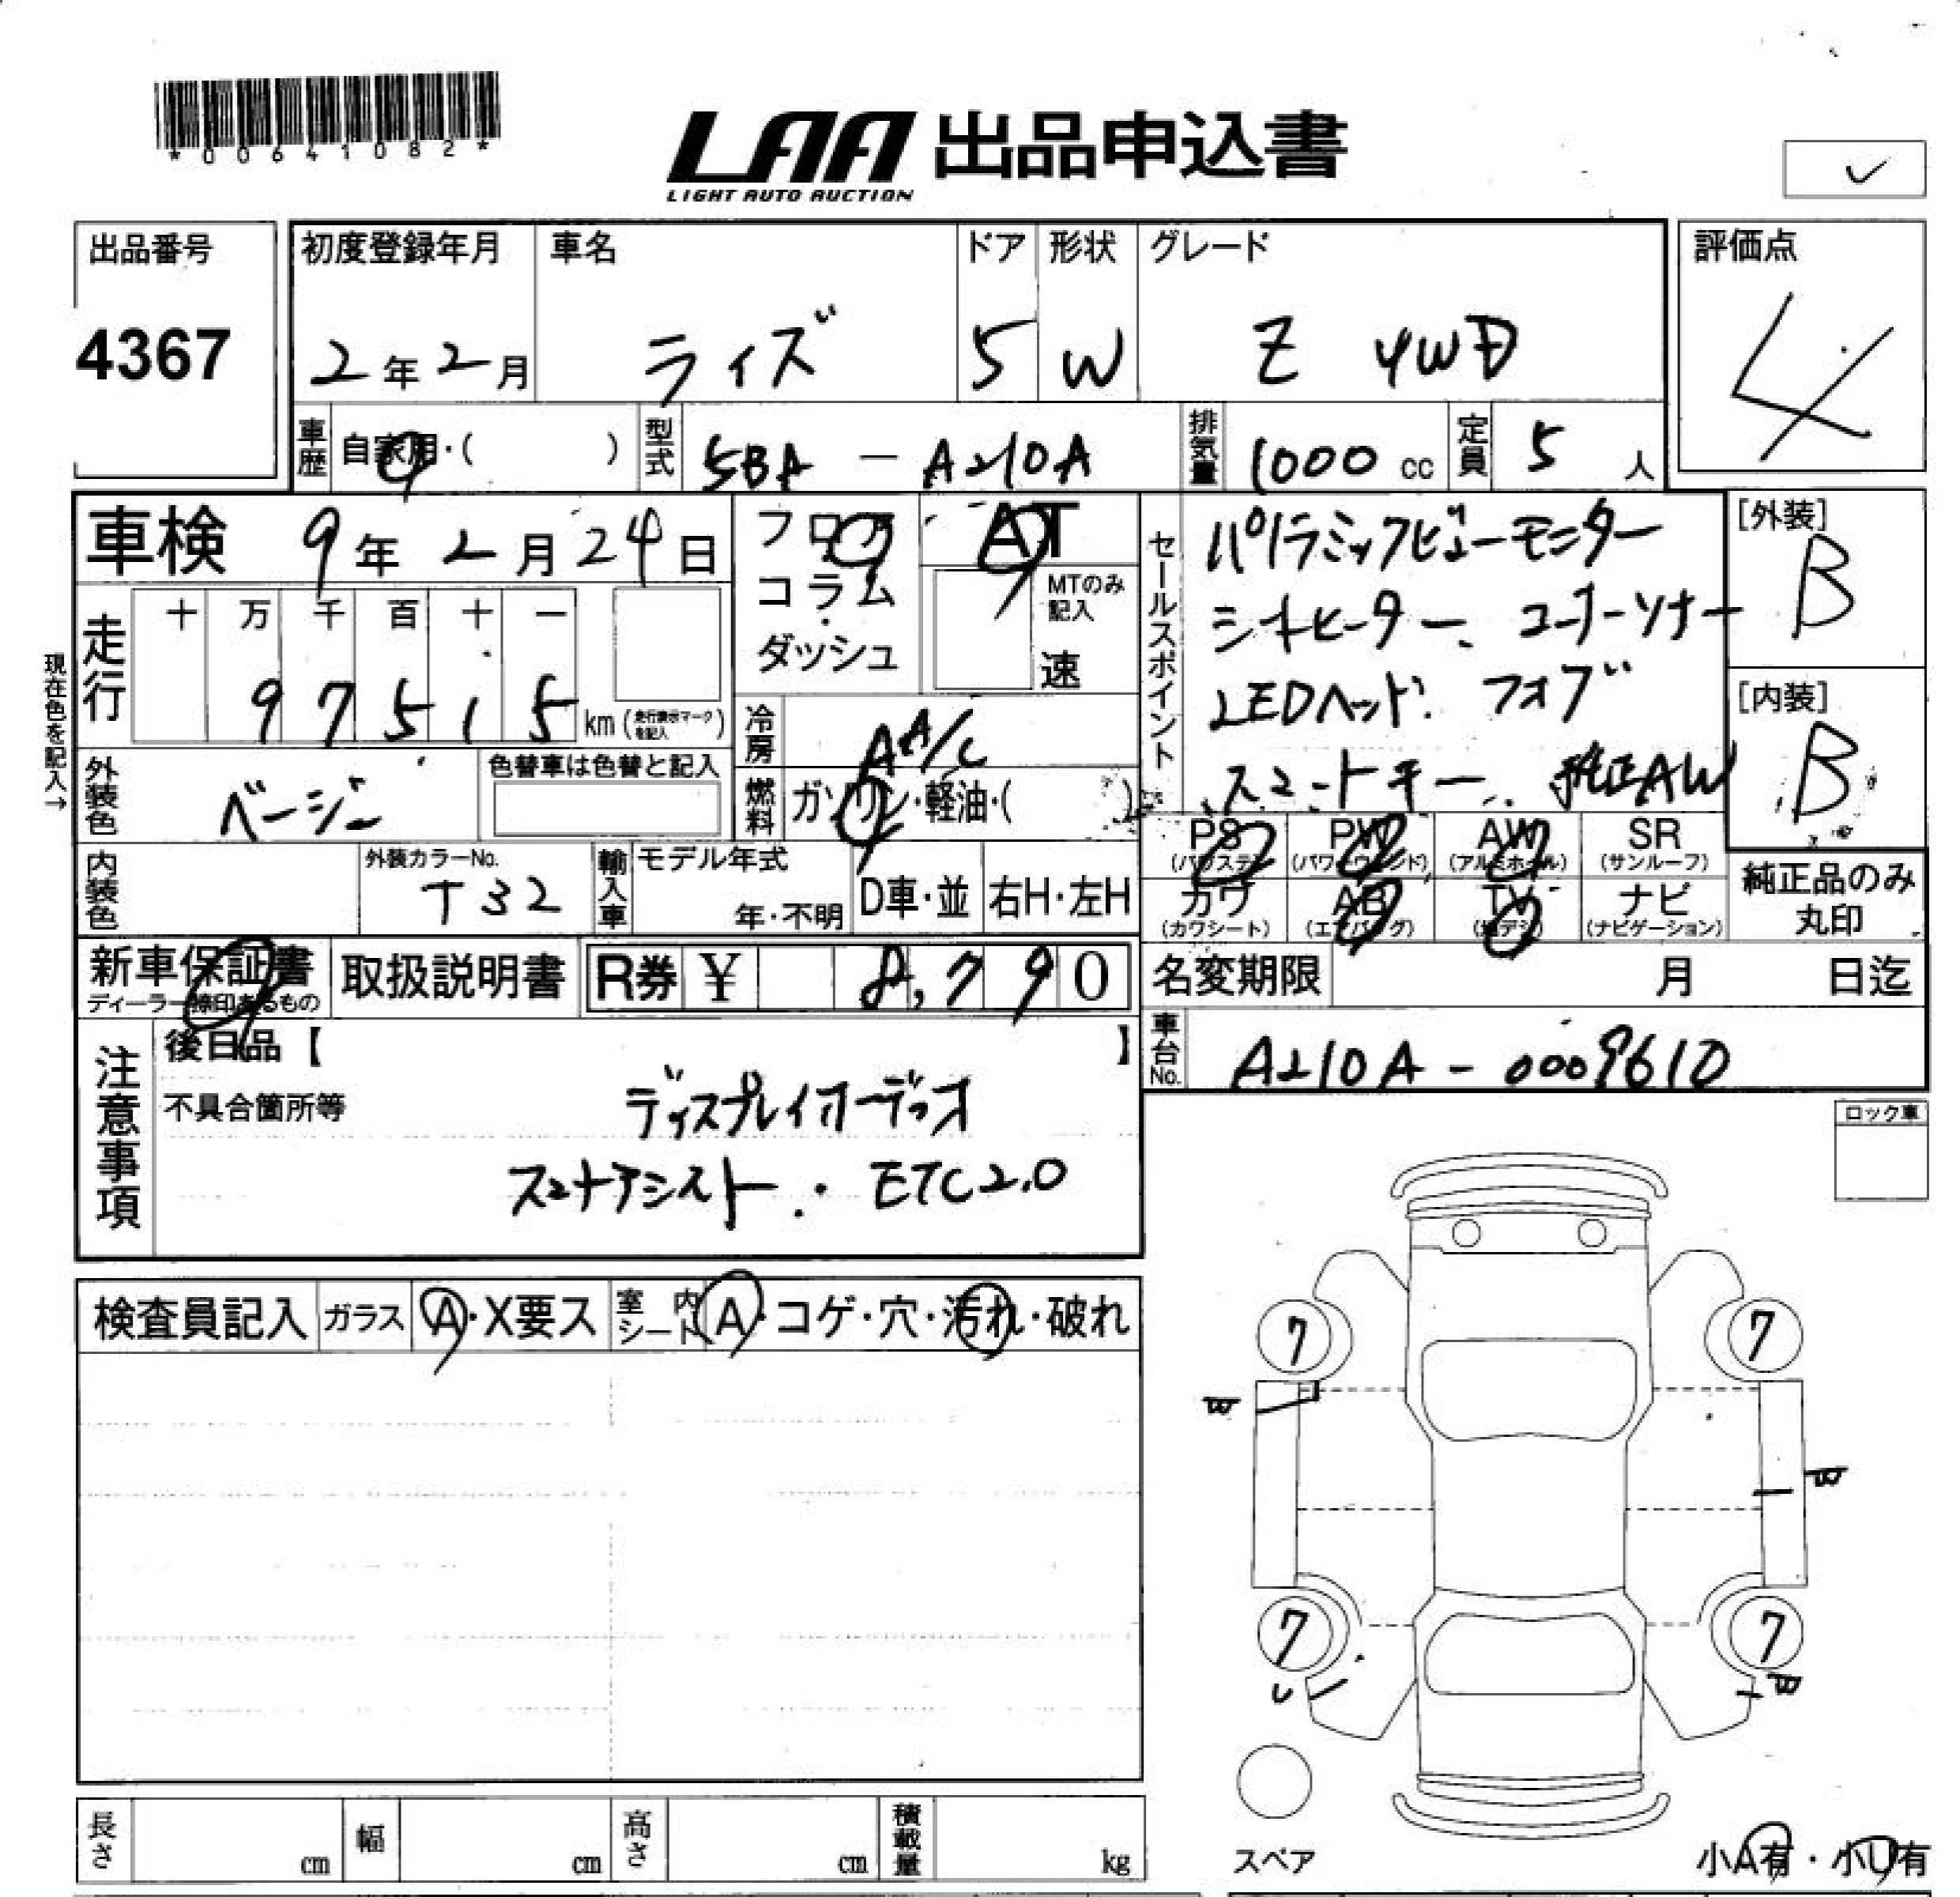 *00641082*
LAA 出品申込書
LIGHT AUTO AUCTION
出品番号
4367
初度登録年月
2年2月
車名
ライズ
ドア
5
形状
W
グレード
Z 4WD
評価点
4
車歴
自家用・( )
型式
5BA - A210A
排気量
1000 cc
定員
5 人
車検 9年 2月 24日
フロア
コラム
ダッシュ
AT
MTのみ記入
速
セールスポイント
パノラミックビューモニター
シートヒーター、コーナーソナー
LEDヘッド. フォブ
スマートキー. 純正AW
[外装]
B
[内装]
B
走行
十 万 千 百 十 一
9 7 5 1 5 km (走行表示マークを記入)
現在色を記入→
冷房
AA/C
外装色
ベージュ
色替車は色替と記入
燃料
ガソリン・軽油・( )
PS (パワステ)
PW (パワーウィンド)
AW (アルミホイル)
SR (サンルーフ)
カワ (カワシート)
AB (エアバッグ)
TV (地デジ)
ナビ (ナビゲーション)
純正品のみ
丸印
内装色
外装カラーNo.
T32
輸入車
モデル年式
年・不明
D車・並
右H・左H
新車保証書
ディーラー捺印あるもの
取扱説明書
R券 ¥ 8,790
名変期限 月 日迄
車台No.
A210A - 0009610
注意事項
後日品【 】
不具合箇所等
ディスプレイオーディオ
スマートアシスト. ETC2.0
ロック車
検査員記入
ガラス
A・X要ス
室内シート
A・コゲ・穴・汚れ・破れ
7
7
B
B
7
7
U
B
スペア
小A有・小U有
長さ cm
幅 cm
高さ cm
積載量 kg